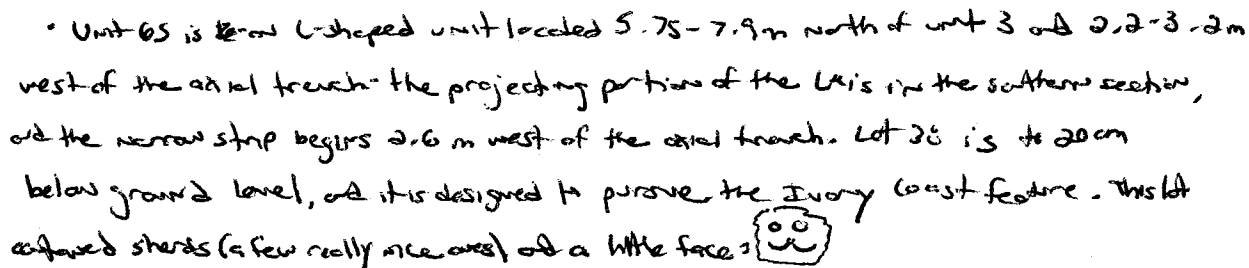 • Unit 65 is an L-shaped unit located 5.75-7.9m north of unit 3 and 2.2-3.2m
west of the axial trench - the projecting portion of the L is in the southern section,
and the narrow strip begins 2.6 m west of the axial trench. Lot 3 is to 20cm
below ground level, and it is designed to pursue the Ivory Coast feature. This lot
contained sherds (a few really nice ones) and a little face: